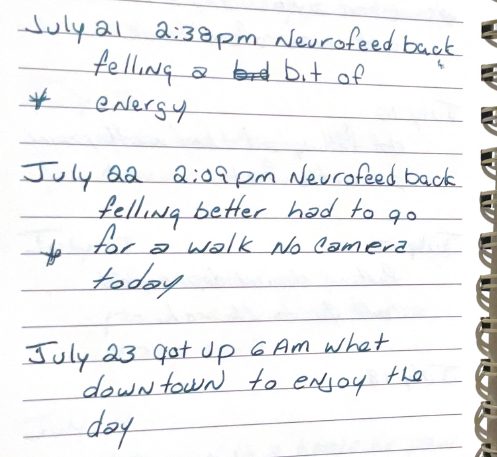 July 21 2:38pm Neurofeed back
felling a bit of
* energy
July 22 2:09pm Neurofeed back
felling better had to go
* for a walk No Camera
today
July 23 got up 6 Am what
downtown to enjoy the
day